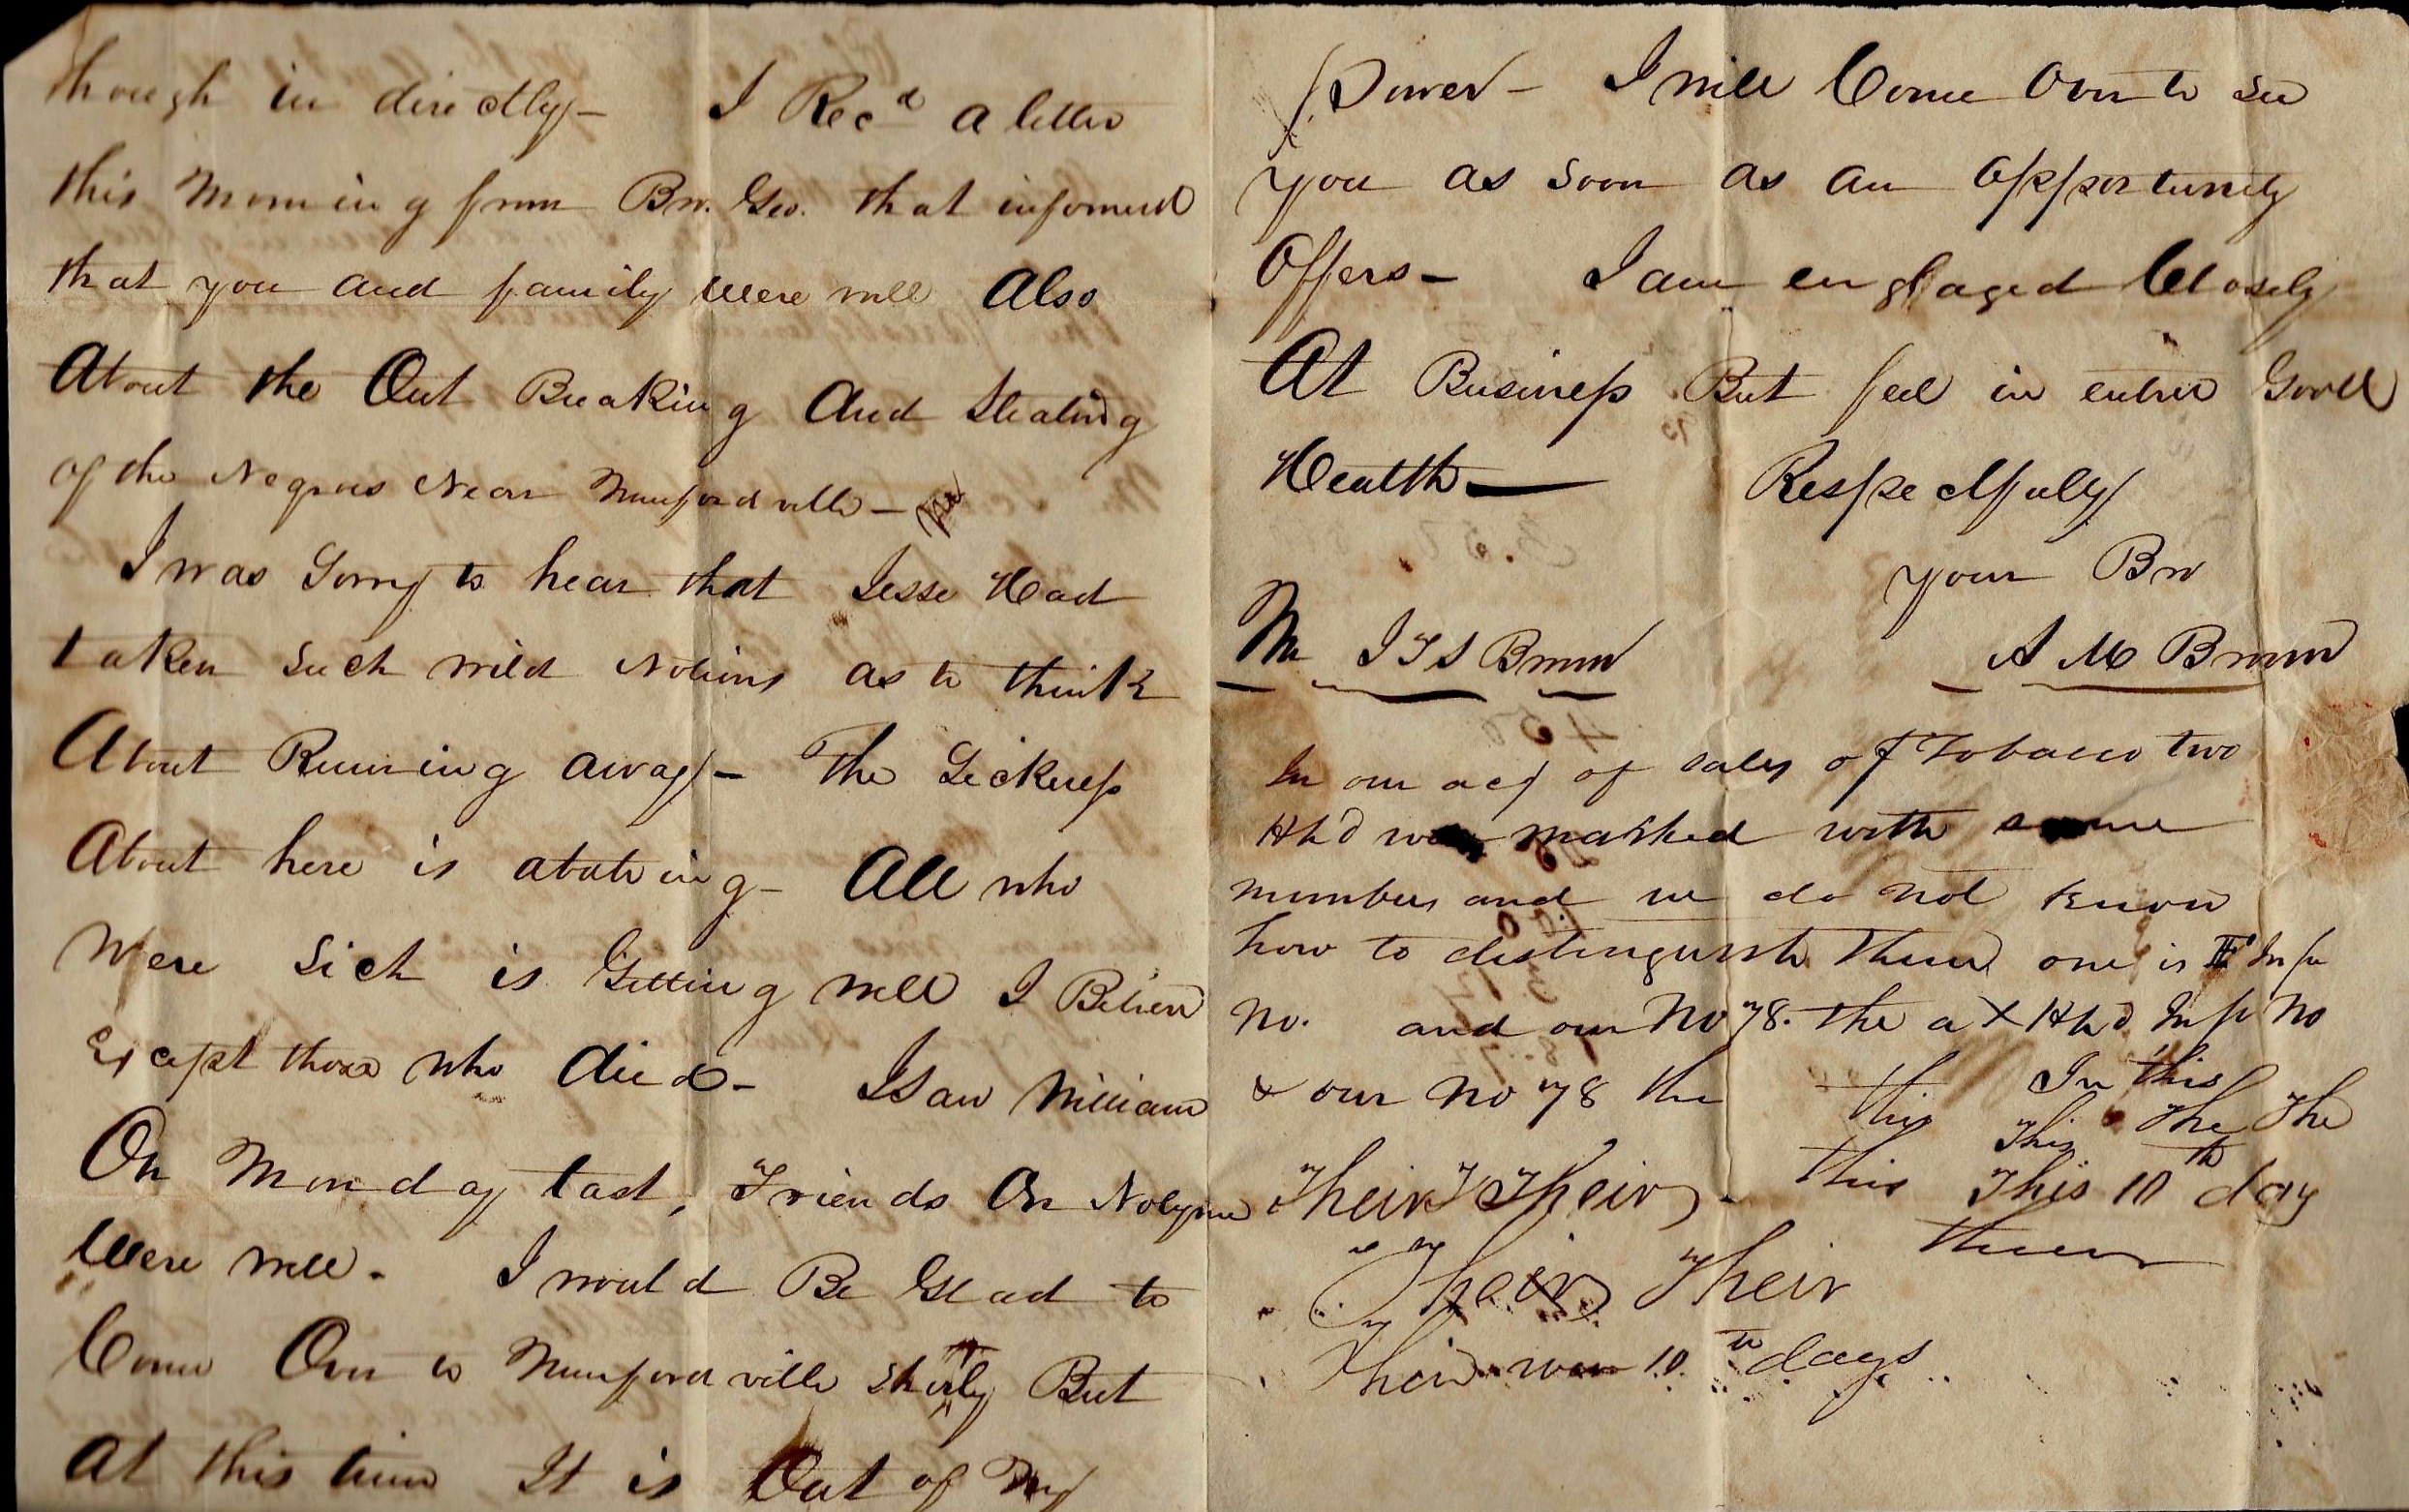 though in directly – I Recd a letter
this Morning from Bro. Geo. that informed
that you and family were well Also
About the Out Breaking And Stealing
of the Negroes Near Munfordville –
I was Sorry to hear that Jesse Had
taken such wild Notions as to think
About Running away – The Sickness
About here is abateing – All who
Were Sick is Getting well I Believe
Except those who died – I Saw William
On Monday last, Friends On Nolynn
Were well. I would Be Glad to
Come Over to Munfordville Shortly But
At this time It is Out of My
Power – I will Come Over to see
you as soon as an opportunity
Offers – I am engaged Closely
At Business But feel in entire Good
Health – Respectfully
your Bro
Mr J T S Brown A M Brown
In our act of sales of Tobacco two
Hhd were marked with same
numbers and we do not know
how to distinguish them one is Insp
No. and our No 78. the a X Hhd Insp No
& our No 78 the In this
this This The The
Their Their this This 10th day
Their Their them
Their won 10th days